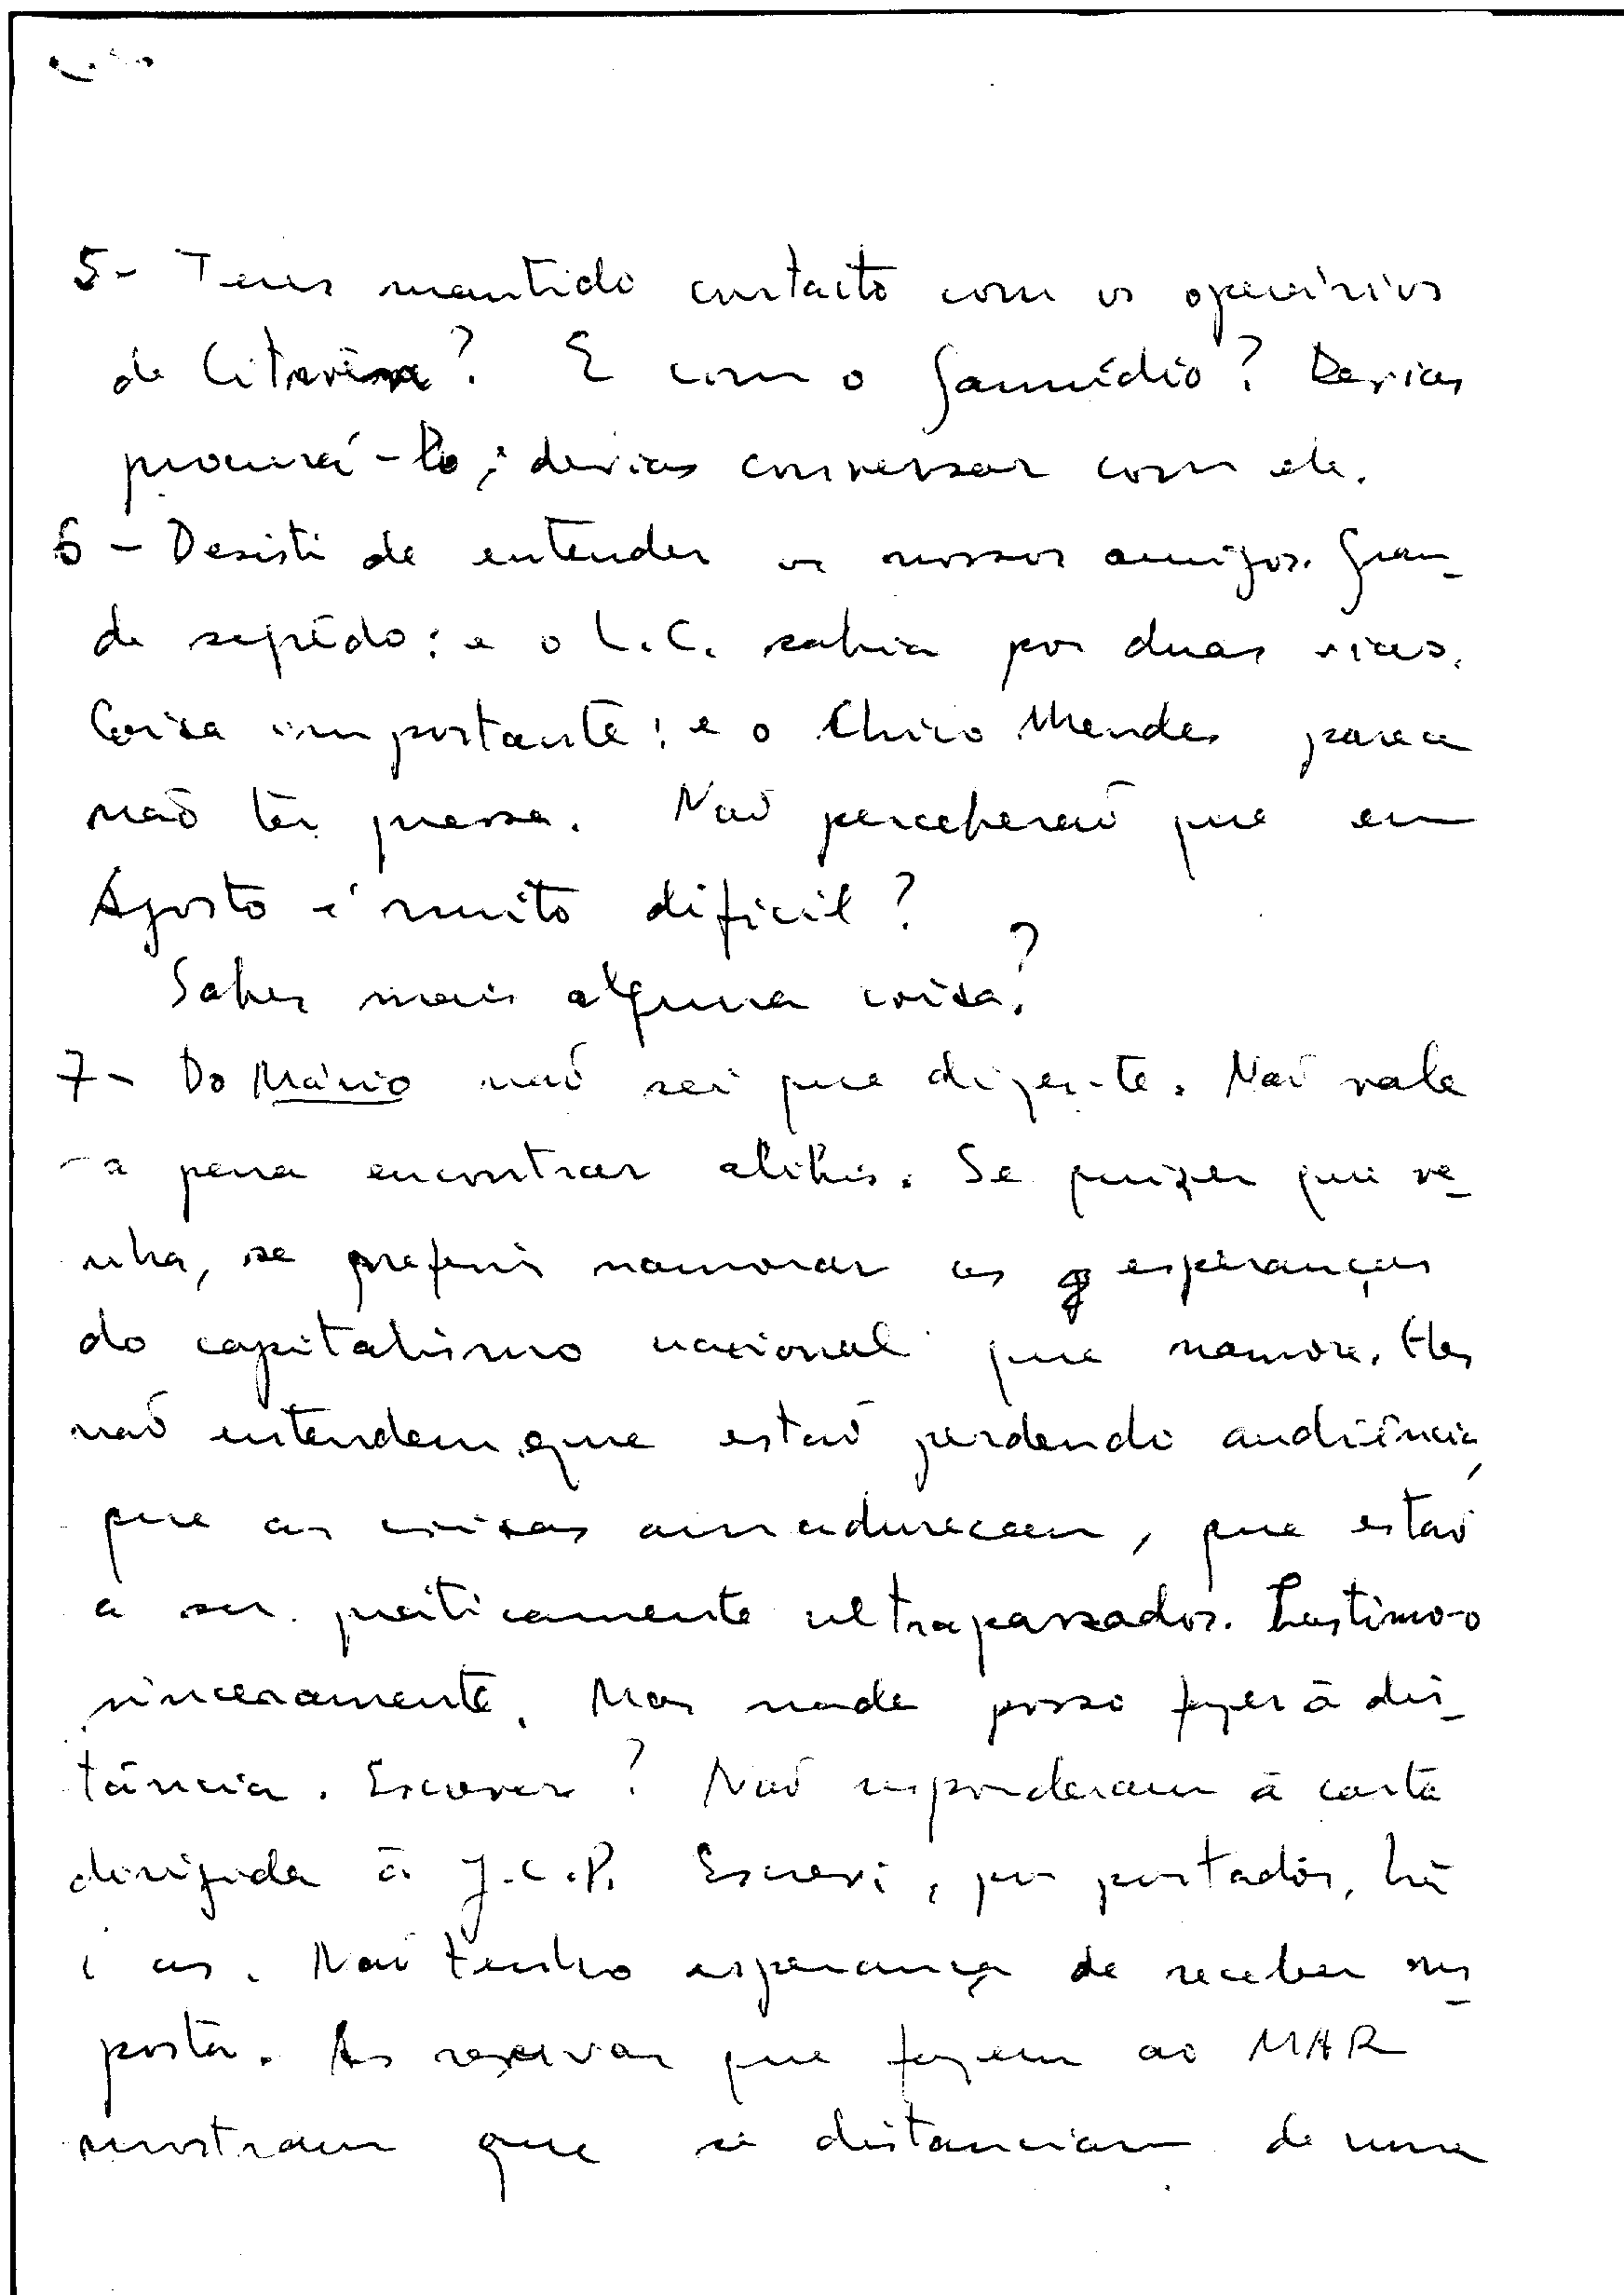 5- Tens mantido contacto com os operários
de ? E com o ? Devias
procurá-lo; devias conversar com ele.
6 - Desisti de entender os nossos amigos. Gran-
de segrêdo: e o L.C. sabia por duas vias.
Coisa importante: e o Chico Mendes parece
não ter pressa. Não perceberão que em
Agosto é muito dificil?
Sabes mais alguma coisa?
7- Do Mário não sei que dizer-te. Não vale
a pena encontrar alibis. Se quizer que ve-
nha, se preferir namorar as esperanças
do capitalismo nacional que namore. Eles
não entendem que estão perdendo audiência,
que as coisas amadurecem, que estão
a ser praticamente ultrapassados. Lastimo-o
sinceramente. Mas nada posso fazer à dis-
tância. Escrever? Não responderam à carta
dirigida à J.C.P. Escrevi, por portador, há
. Não tenho esperança de receber res-
posta. As reservas que fazem ao MAR
mostram que se distanciam de uma